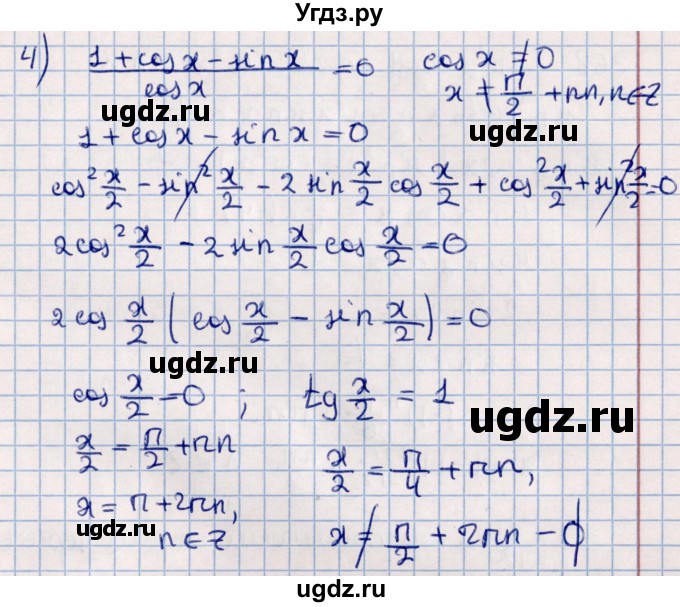 Угдз.ру
4) (1 + cos x - sin x)/cos x = 0   cos x ≠ 0
x ≠ π/2 + πn, n∈Z
ugdz.ru
1 + cos x - sin x = 0
cos² x/2 - sin² x/2 - 2 sin x/2 cos x/2 + cos² x/2 + sin² x/2 = 0
ugdz.ru
2cos² x/2 - 2 sin x/2 cos x/2 = 0
2 cos x/2 (cos x/2 - sin x/2) = 0
ugdz.ru
cos x/2 = 0 ; tg x/2 = 1
ugdz.ru
x/2 = π/2 + πn   x/2 = π/4 + πn,
x = π + 2πn,
ugdz.ru
n∈Z   x ≠ π/2 + 2πn - ∅
ugdz.ru